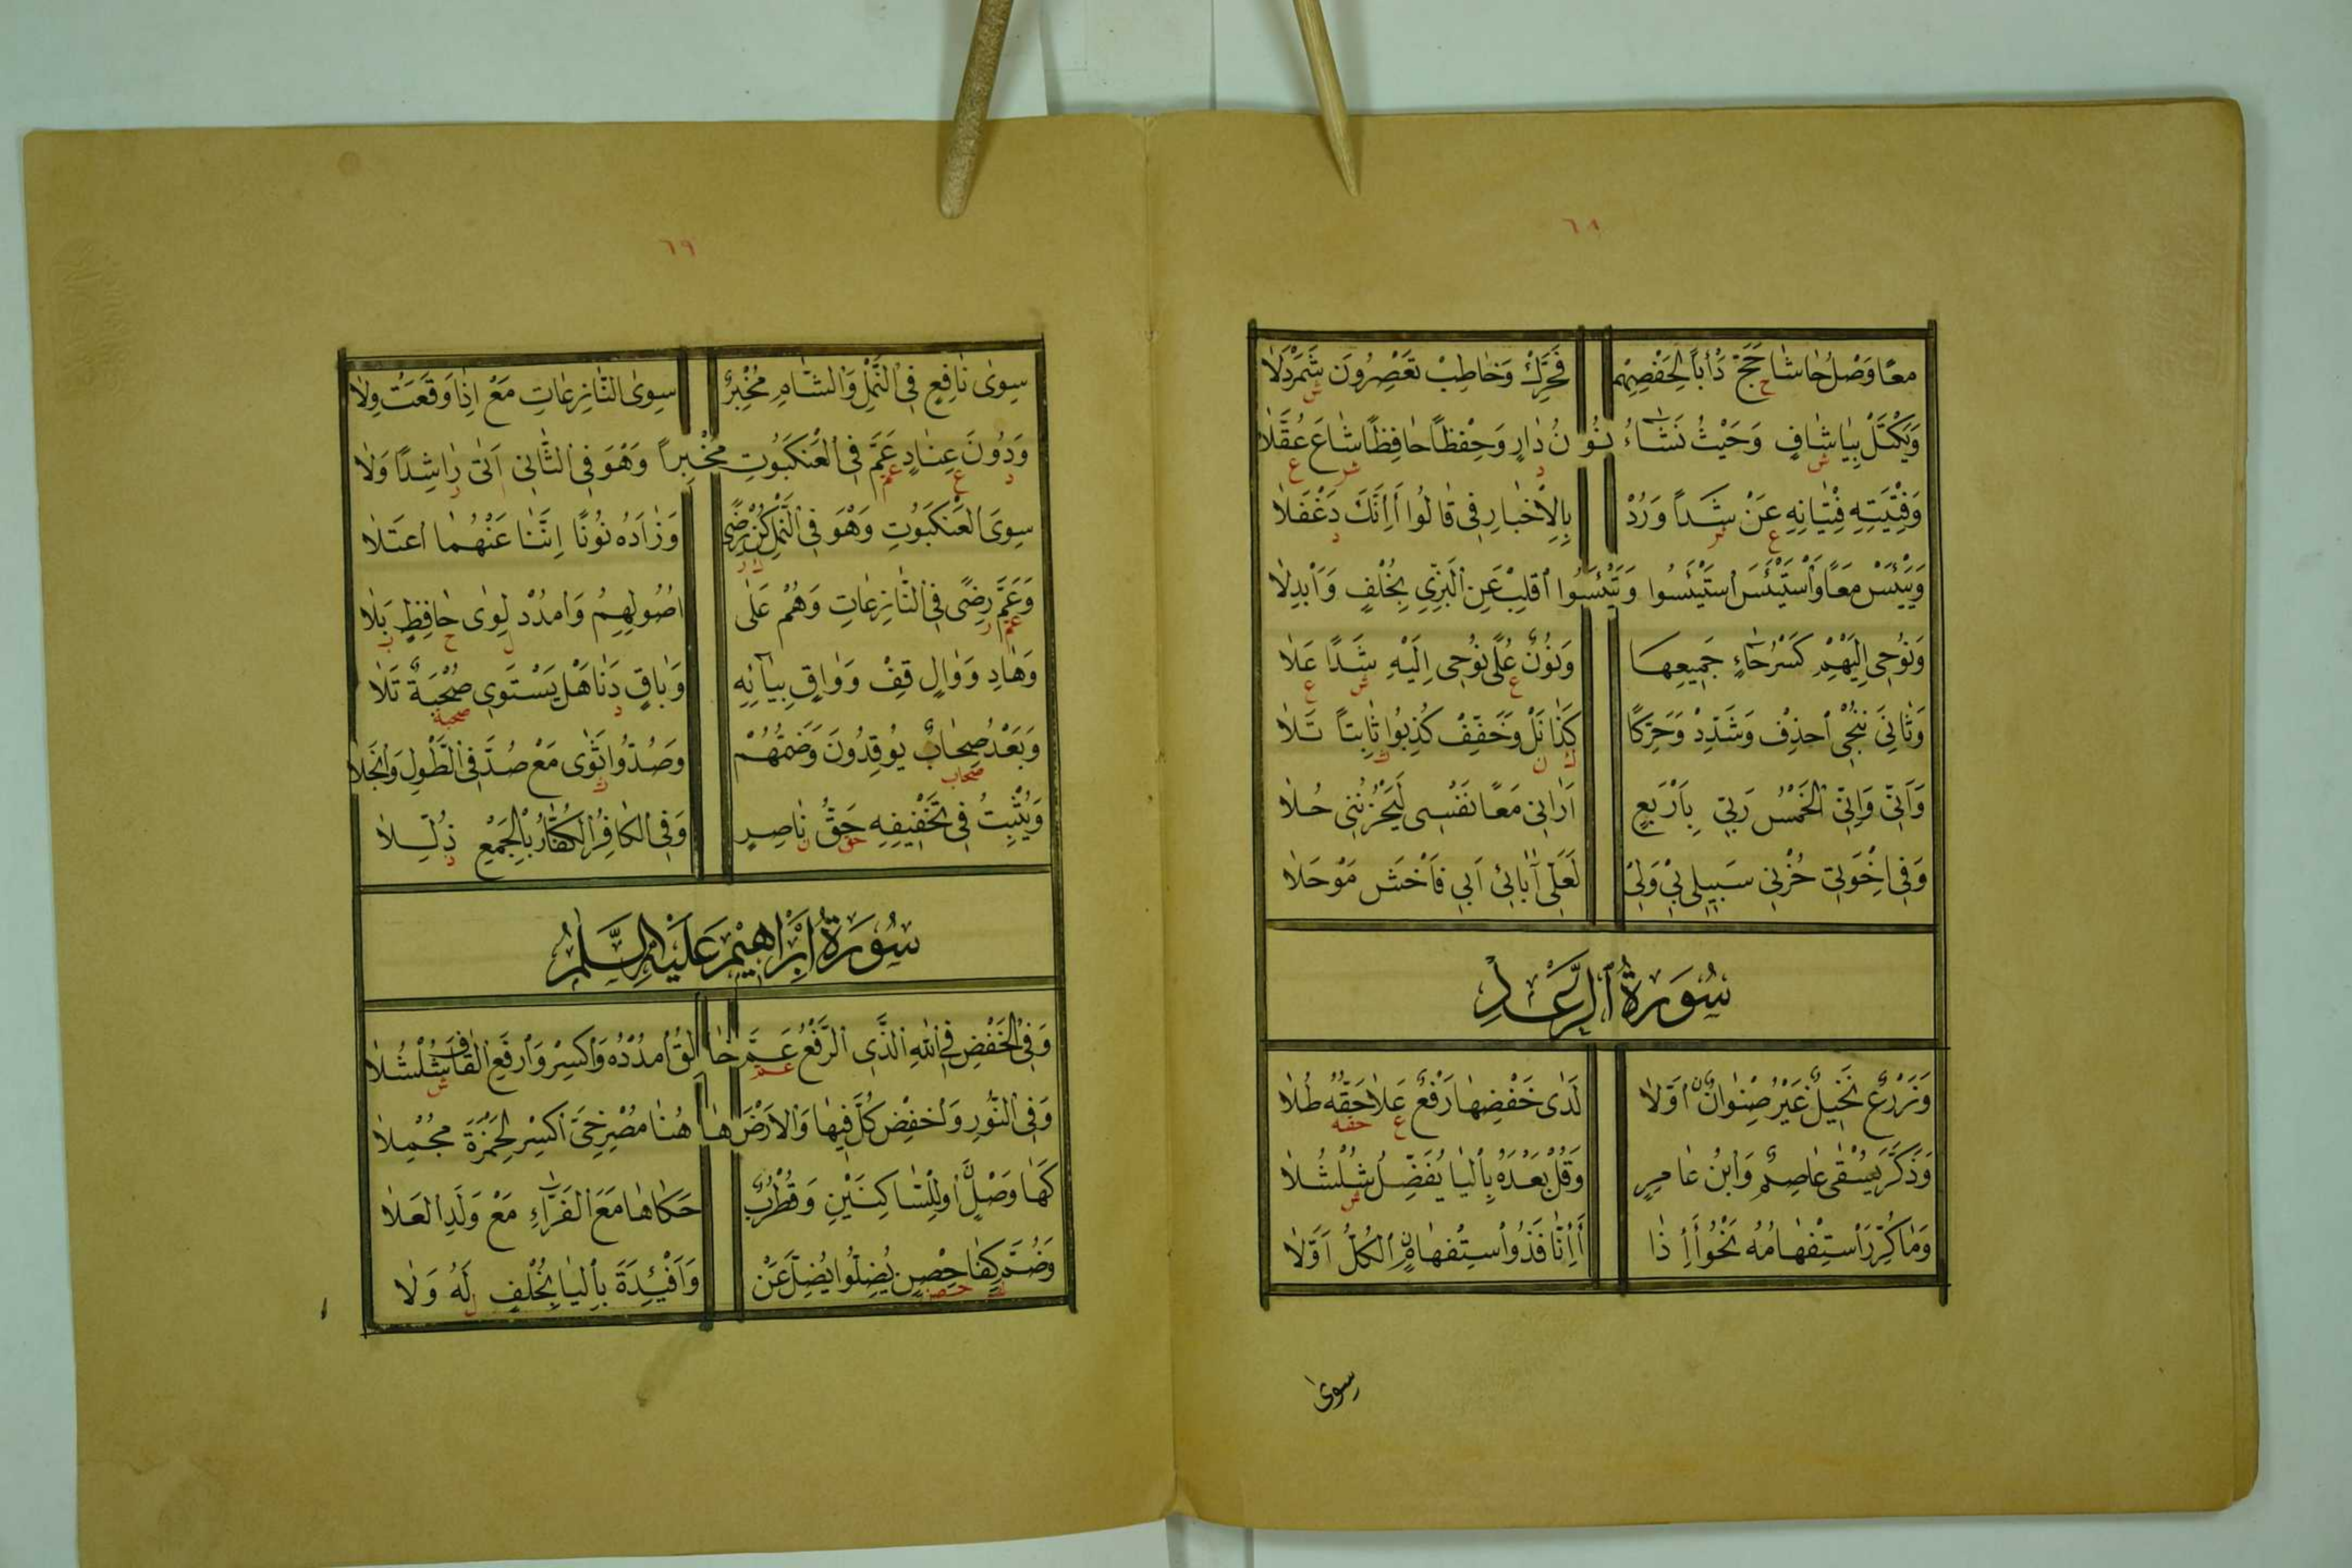 ٦٨
مَعًا وَصْلُ حَاشَا حَجَّ دَأْبًا لِحَفْصِهِمْ فَحَرِّكْ وَخَاطِبْ تَعْصِرُونَ شَمَرْدَلَا
وَيَكْتَلْ بِيَا شَافٍ وَحَيْثُ نَشَاءُ نُونُ دَارٍ وَحِفْظًا حَافِظًا شَاعَ عُقَّلَا
وَفِتْيَتِهِ فِتْيَانِهِ عَنْ شَذًا وَرُدْ بِالْإِخْبَارِ فِي قَالُوا أَإِنَّكَ دَغْفَلَا
وَيَيْئَسْ مَعًا وَاسْتَيْئَسَ اسْتَيْئَسُوا وَتَيْئَسُوا اقْلِبْ عَنِ الْبَزِّي بِخُلْفٍ وَأَبْدِلَا
وَنُوحِي إِلَيْهِمْ كَسْرُ حَاءٍ جَمِيعِهَا وَنُونٌ عُلًى نُوحِي إِلَيْهِ شَذًا عَلَا
وَثَانِيَ نُنْجِي احْذِفْ وَشَدِّدْ وَحَرِّكًا كَذَا نَلْ وَخَفِّفْ كُذِبُوا ثَابِتًا تَلَا
وَأَنِّي وَإِنِّي الْخَمْسُ رَبِّي بِأَرْبَعٍ أَرَانِي مَعًا نَفْسِي لَيَحْزُنُنِي حُلَا
وَفِي إِخْوَتِي حُزْنِي سَبِيلِي بِي وَلِي لَعَلِّي آبَائِي أَبِي فَاخْشَ مَوْحَلَا
سُورَةُ الرَّعْدِ
وَزَرْعٌ نَخِيلٌ غَيْرُ صِنْوَانٌ أَوَّلَا لَدَى خَفْضِهَا رَفْعٌ عَلَا حَقُّهُ طُلَا
وَذَكَّرَ يُسْقَى عَاصِمٌ وَابْنُ عَامِرٍ وَقُلْ بَعْدَهُ بِالْيَا يُفَضِّلُ شُلْشُلَا
وَمَا كُرِّرَ اسْتِفْهَامُهُ نَحْوُ أَإِذَا أَإِنَّا فَذُو اسْتِفْهَامٍ الْكُلُّ أَوَّلَا
سوى
٦٩
سِوَى نَافِعٍ فِي النَّمْلِ وَالشَّامِ مُخْبِرٌ سِوَى النَّازِعَاتِ مَعْ إِذَا وَقَعَتْ وِلَا
وَدُونَ عِنَادٍ عَمَّ فِي الْعَنْكَبُوتِ مُخْبِرًا وَهْوَ فِي الثَّانِي أَتَى رَاشِدًا وَلَا
سِوَى الْعَنْكَبُوتِ وَهْوَ فِي النَّمْلِ كُنْ رِضًى وَزَادَهُ نُونًا إِنَّنَا عَنْهُمَا اعْتَلَا
وَعَمَّ رِضًى فِي النَّازِعَاتِ وَهُمْ عَلَى أُصُولِهِمُ وَامْدُدْ لِوَى حَافِظٍ بَلَا
وَهَادِ وَوَالٍ قِفْ وَوَاقٍ بِيَائِهِ وَبَاقٍ دَنَا هَلْ يَسْتَوِي صُحْبَةٌ تَلَا
وَبَعْدُ صِحَابٌ يُوقِدُونَ وَضَمُّهُمْ وَصُدُّوا ثَوَى مَعْ صُدَّ فِي الطَّوْلِ وَانْجَلَا
وَيُثْبِتُ فِي تَخْفِيفِهِ حَقُّ نَاصِرٍ وَفِي الْكَافِرُ الْكُفَّارُ بِالْجَمْعِ ذُلِّلَا
سُورَةُ إِبْرَاهِيمَ عَلَيْهِ السَّلَمُ
وَفِي الْخَفْضِ فِي اللهِ الَّذِي الرَّفْعُ عَمَّ خَالِقُ امْدُدْهُ وَاكْسِرْ وَارْفَعِ الْقَافَ شُلْشُلَا
وَفِي النُّورِ وَاخْفِضْ كُلَّ فِيهَا وَالْأَرْضَ هَا هُنَا مُصْرِخِيَّ اكْسِرْ لِحَمْزَةَ مُجْمِلَا
كَهَا وَصْلٍ أَوْ لِلسَّاكِنَيْنِ وَقُطْرُبٌ حَكَاهَا مَعَ الْفَرَّاءِ مَعْ وَلَدِ الْعَلَا
وَضُمَّ كِفَا حِصْنٍ يُضِلُّوا يُضِلَّ عَنْ وَأَفْئِدَةً بِالْيَا بِخُلْفٍ لَهُ وَلَا